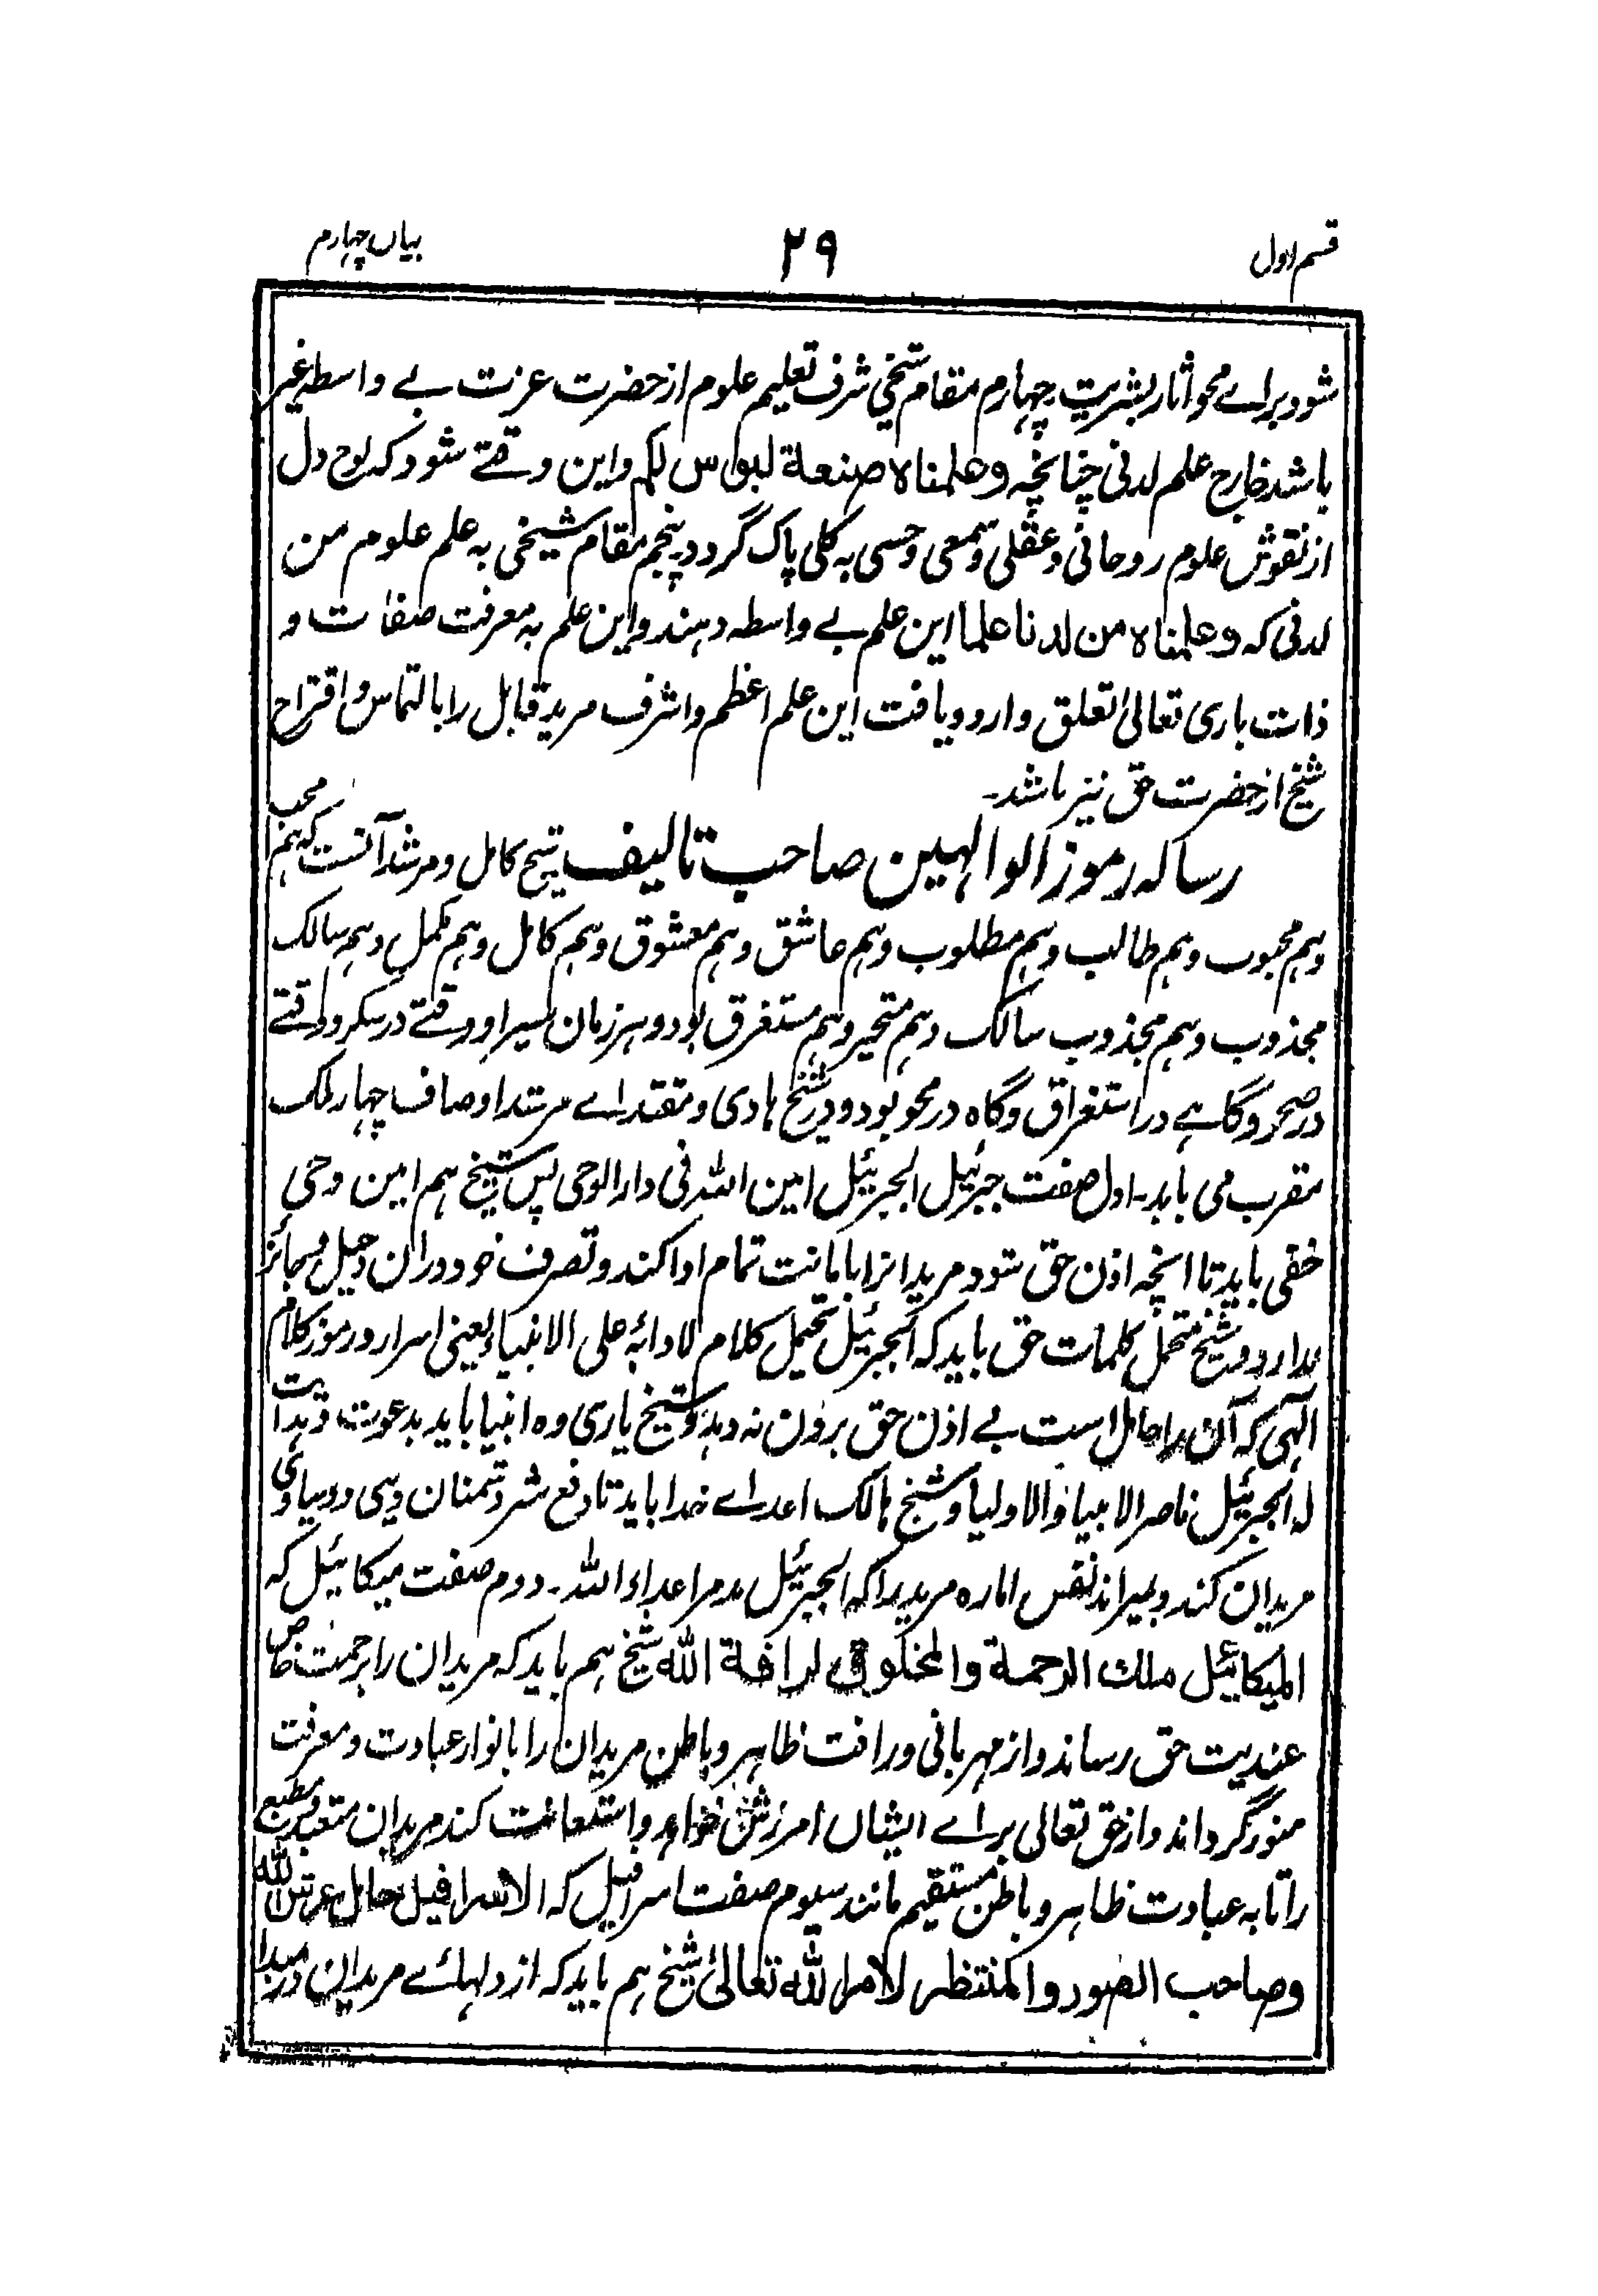 قسم اول
۲۹
بیاں چہارم
شود برائے محو آثار بشریت چہارم مقام شیخی شرف تعلیم علوم از حضرت عزت بے واسطہ غیر
باشد خارج علم لدنی چنانچہ وعلمناه صنعة لبوس لکم واین وقتے شود کہ لوح دل
از نقوش علوم روحانی و عقلی و سمعی و حسی بہ کلی پاک گردد پنجم مقام شیخی بہ علم علوم من
لدنی کہ وعلمناه من لدنا علما این علم بے واسطہ دہند واین علم بہ معرفت صفات و
ذات باری تعالیٰ تعلق دارد و یافت این علم اعظم و اشرف مرید قابل را بالتماس و اقتراح
شیخ از حضرت حق نیز باشد۔
رسالہ رموز الوالہین صاحب تالیف شیخ کامل و مرشد آنست کہ ہم محب
وہم محبوب وہم طالب وہم مطلوب وہم عاشق وہم معشوق وہم کامل وہم مکمل وہم سالک
مجذوب وہم مجذوب سالک وہم متحیر وہم مستغرق بود و ہر زمان سیر او وقتے در سکر و وقتے
در صحو و گاہے در استغراق و گاہ در محو بود و در شیخ ہادی و مقتدائے مرشد اوصاف چہار ملک
مقرب می باید۔ اول صفت جبرئیل الجبرئیل امین اللہ فی دار الوحی پس شیخ ہم امین وحی
خفی باید تا انچہ اذن حق شود مریدانرا بامانت تمام ادا کند و تصرف خود در ان دخیل و جائز
ندارد و شیخ متحمل کلمات حق باید کہ الجبرئیل تحمیل کلام لادائہ علی الانبیاء یعنی اسرار و رموز کلام
الہی کہ آن را حامل است بے اذن حق برون نہ دہد و شیخ یاری دہ انبیا باید بدعوت و ہدایت
لہ الجبرئیل ناصر الانبیا والاولیا و شیخ ہالک اعدائے خدا باید تا دفع شر دشمنان دینی و دنیاوی
مریدان کند و بمیراند نفس امارہ مرید را کہ الجبرئیل مدمر اعداء اللہ۔ دوم صفت میکائیل کہ
المیکائیل ملك الرحمة والمخلوق لرافة الله شیخ ہم باید کہ مریدان را برحمت خاص
عندیت حق رساند و از مہربانی و رافت ظاہر و باطن مریدان را بانوار عبادت و معرفت
منور گرداند و از حق تعالی برائے ایشاں امرزش خواہد و استعانت کند مریدان متعبد مطیع
را تا بہ عبادت ظاہر و باطن مستقیم مانند سیوم صفت اسرافیل کہ الاسرافیل حامل عرش الله
وصاحب الصور والمنتظر لامر الله تعالیٰ شیخ ہم باید کہ از دلہائے مریدان در مبدا